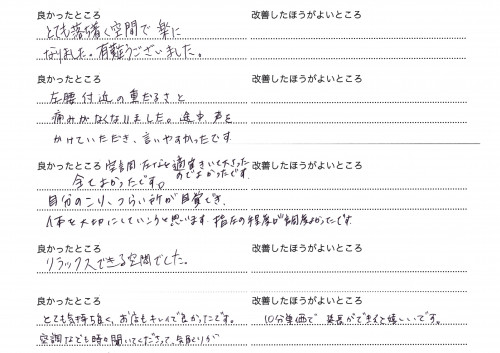 良かったところ 改善したほうがよいところ
とても落ち着く空間で楽に
なりました。有難うございました。
良かったところ 改善したほうがよいところ
左腰付近の重だるさと
痛みがなくなりました。途中声を
かけていただき、言いやすかったです
良かったところ 空調 など 適宜きいて下さった 改善したほうがよいところ
のでよかったです。
全てよかったです。
自分のこり、つらい所が自覚でき、
体を大切にしていこうと思います。指圧の程度が 良かったです
良かったところ 改善したほうがよいところ
リラックスできる空間でした。
良かったところ 改善したほうがよいところ
とても気持ち良く、お店もキレイで良かったです。 10分単価で 嬉しいです。
空調なども時々聞いてくださって、